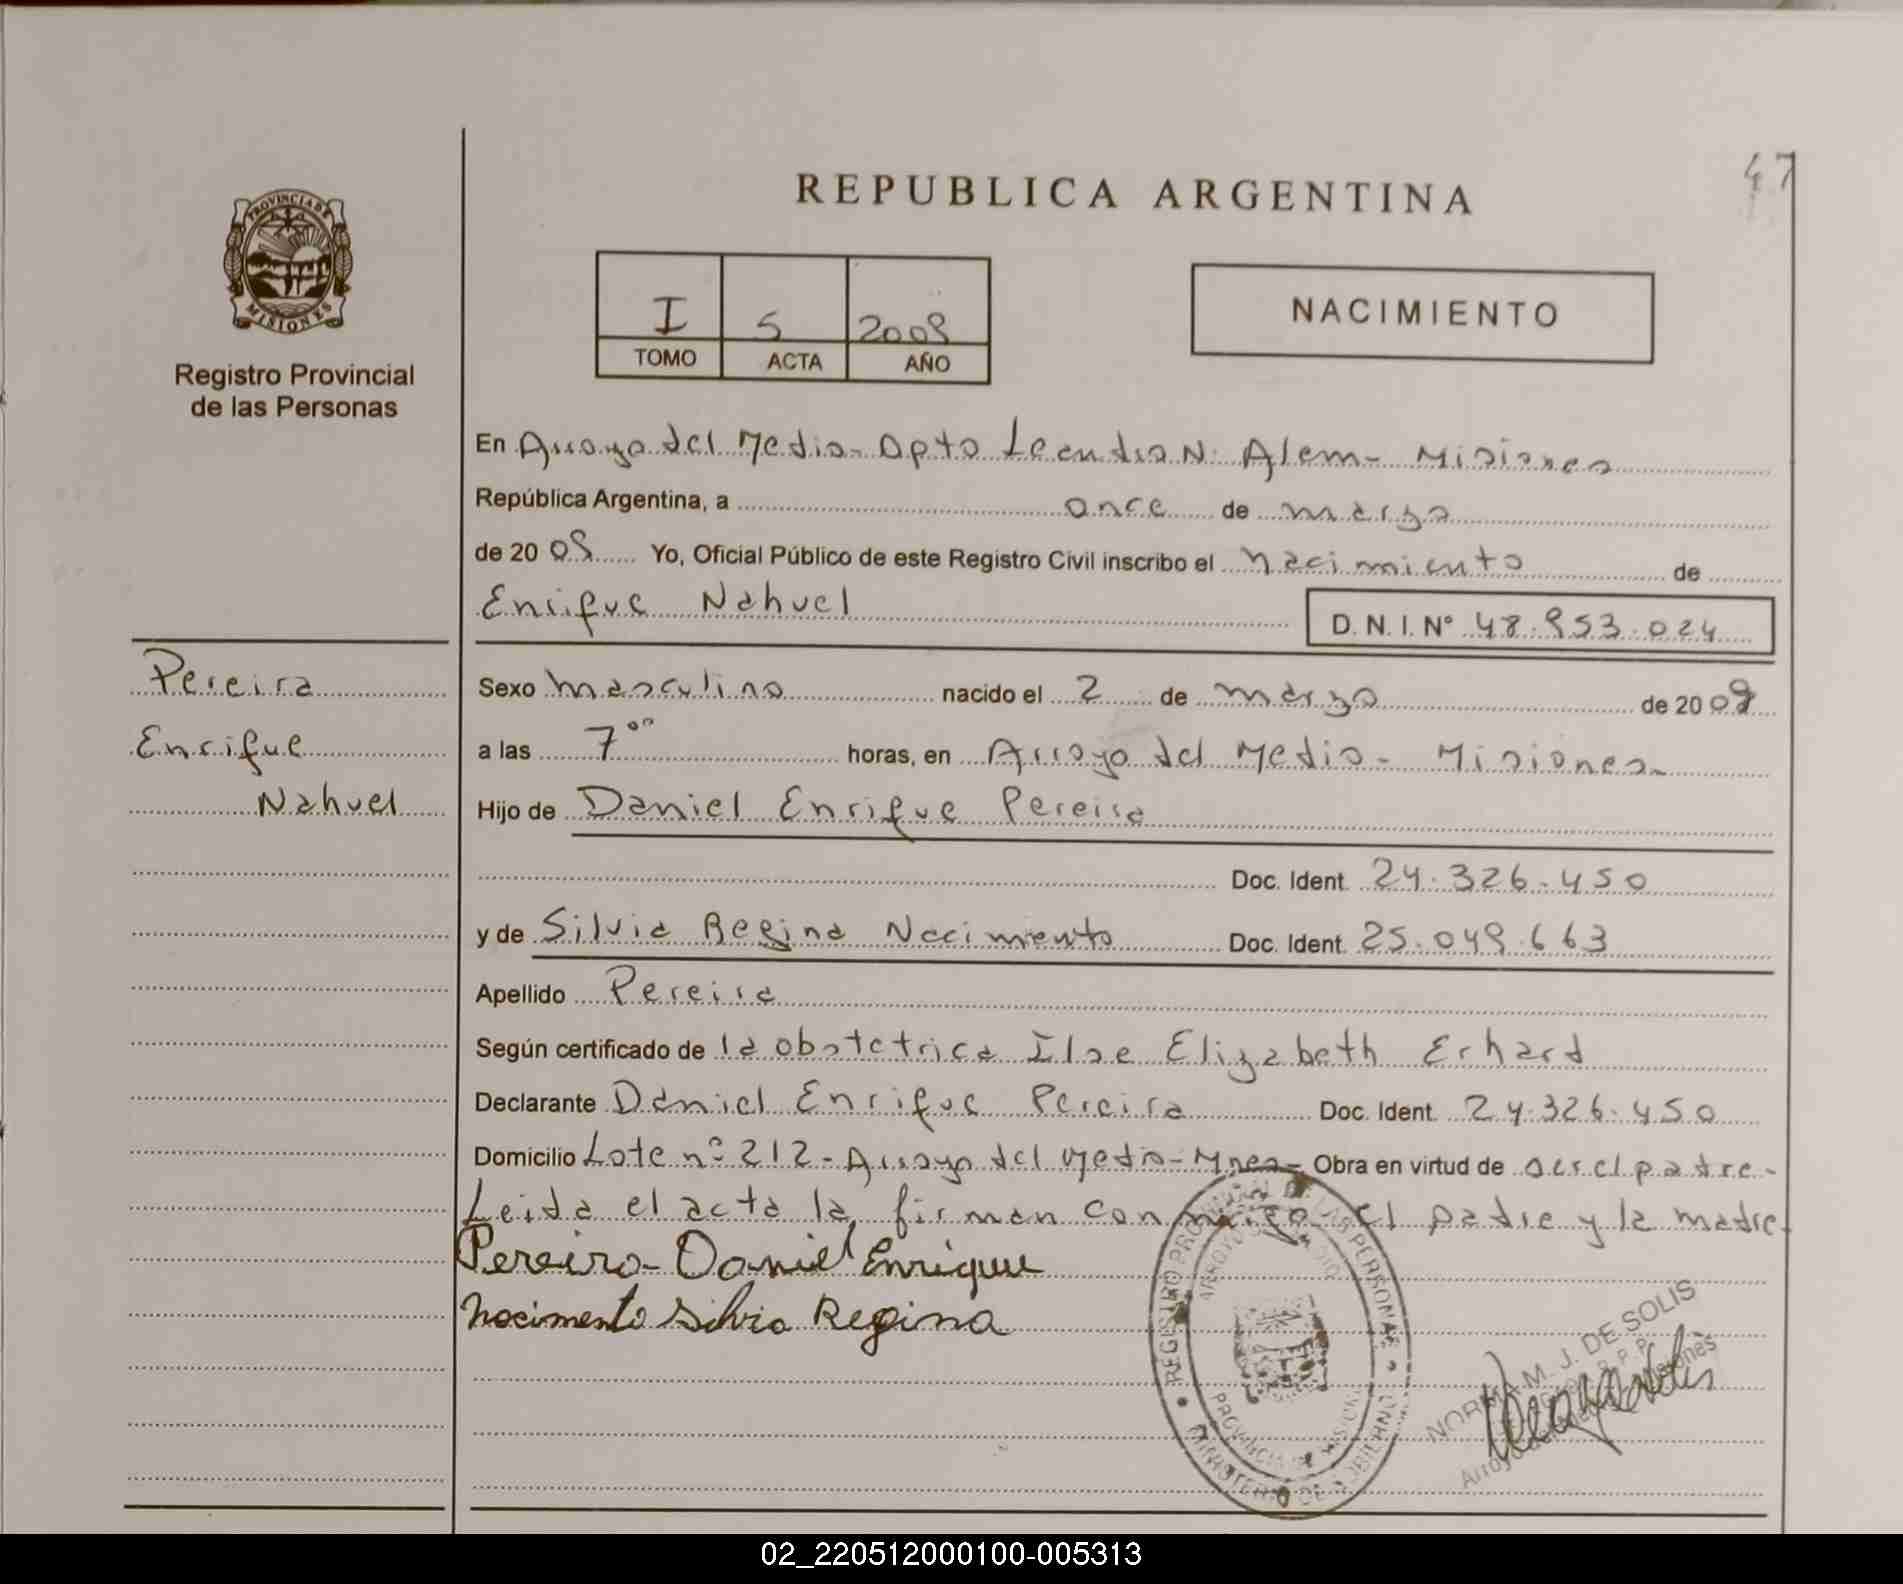 47
REPUBLICA ARGENTINA
PROVINCIA DE
MISIONES
Registro Provincial
de las Personas
I 5 2009
TOMO ACTA AÑO
NACIMIENTO
En Arroyo del Medio - Dpto Leandro N. Alem - Misiones
República Argentina, a once de marzo
de 20 09 Yo, Oficial Público de este Registro Civil inscribo el nacimiento de
Enrique Nahuel
D. N. I. Nº 48.953.024
Pereira
Enrique
Nahuel
Sexo masculino nacido el 2 de marzo de 20 09
a las 7 ºº horas, en Arroyo del Medio - Misiones -
Hijo de Daniel Enrique Pereira
Doc. Ident. 24.326.450
y de Silvia Regina Nacimiento Doc. Ident. 25.049.663
Apellido Pereira
Según certificado de la obstetrica Ilse Elizabeth Erhard
Declarante Daniel Enrique Pereira Doc. Ident. 24.326.450
Domicilio Lote nº 212 - Arroyo del Medio - Mnes - Obra en virtud de ser el padre -
Leida el acta la firman conmigo el padre y la madre
Pereira - Daniel Enrique
Nacimento Silvia Regina
REGISTRO PROVINCIAL DE LAS PERSONAS
ARROYO DEL MEDIO
PROVINCIA DE MISIONES
MINISTERIO DE GOBIERNO
NORMA M. J. DE SOLIS
02_220512000100-005313